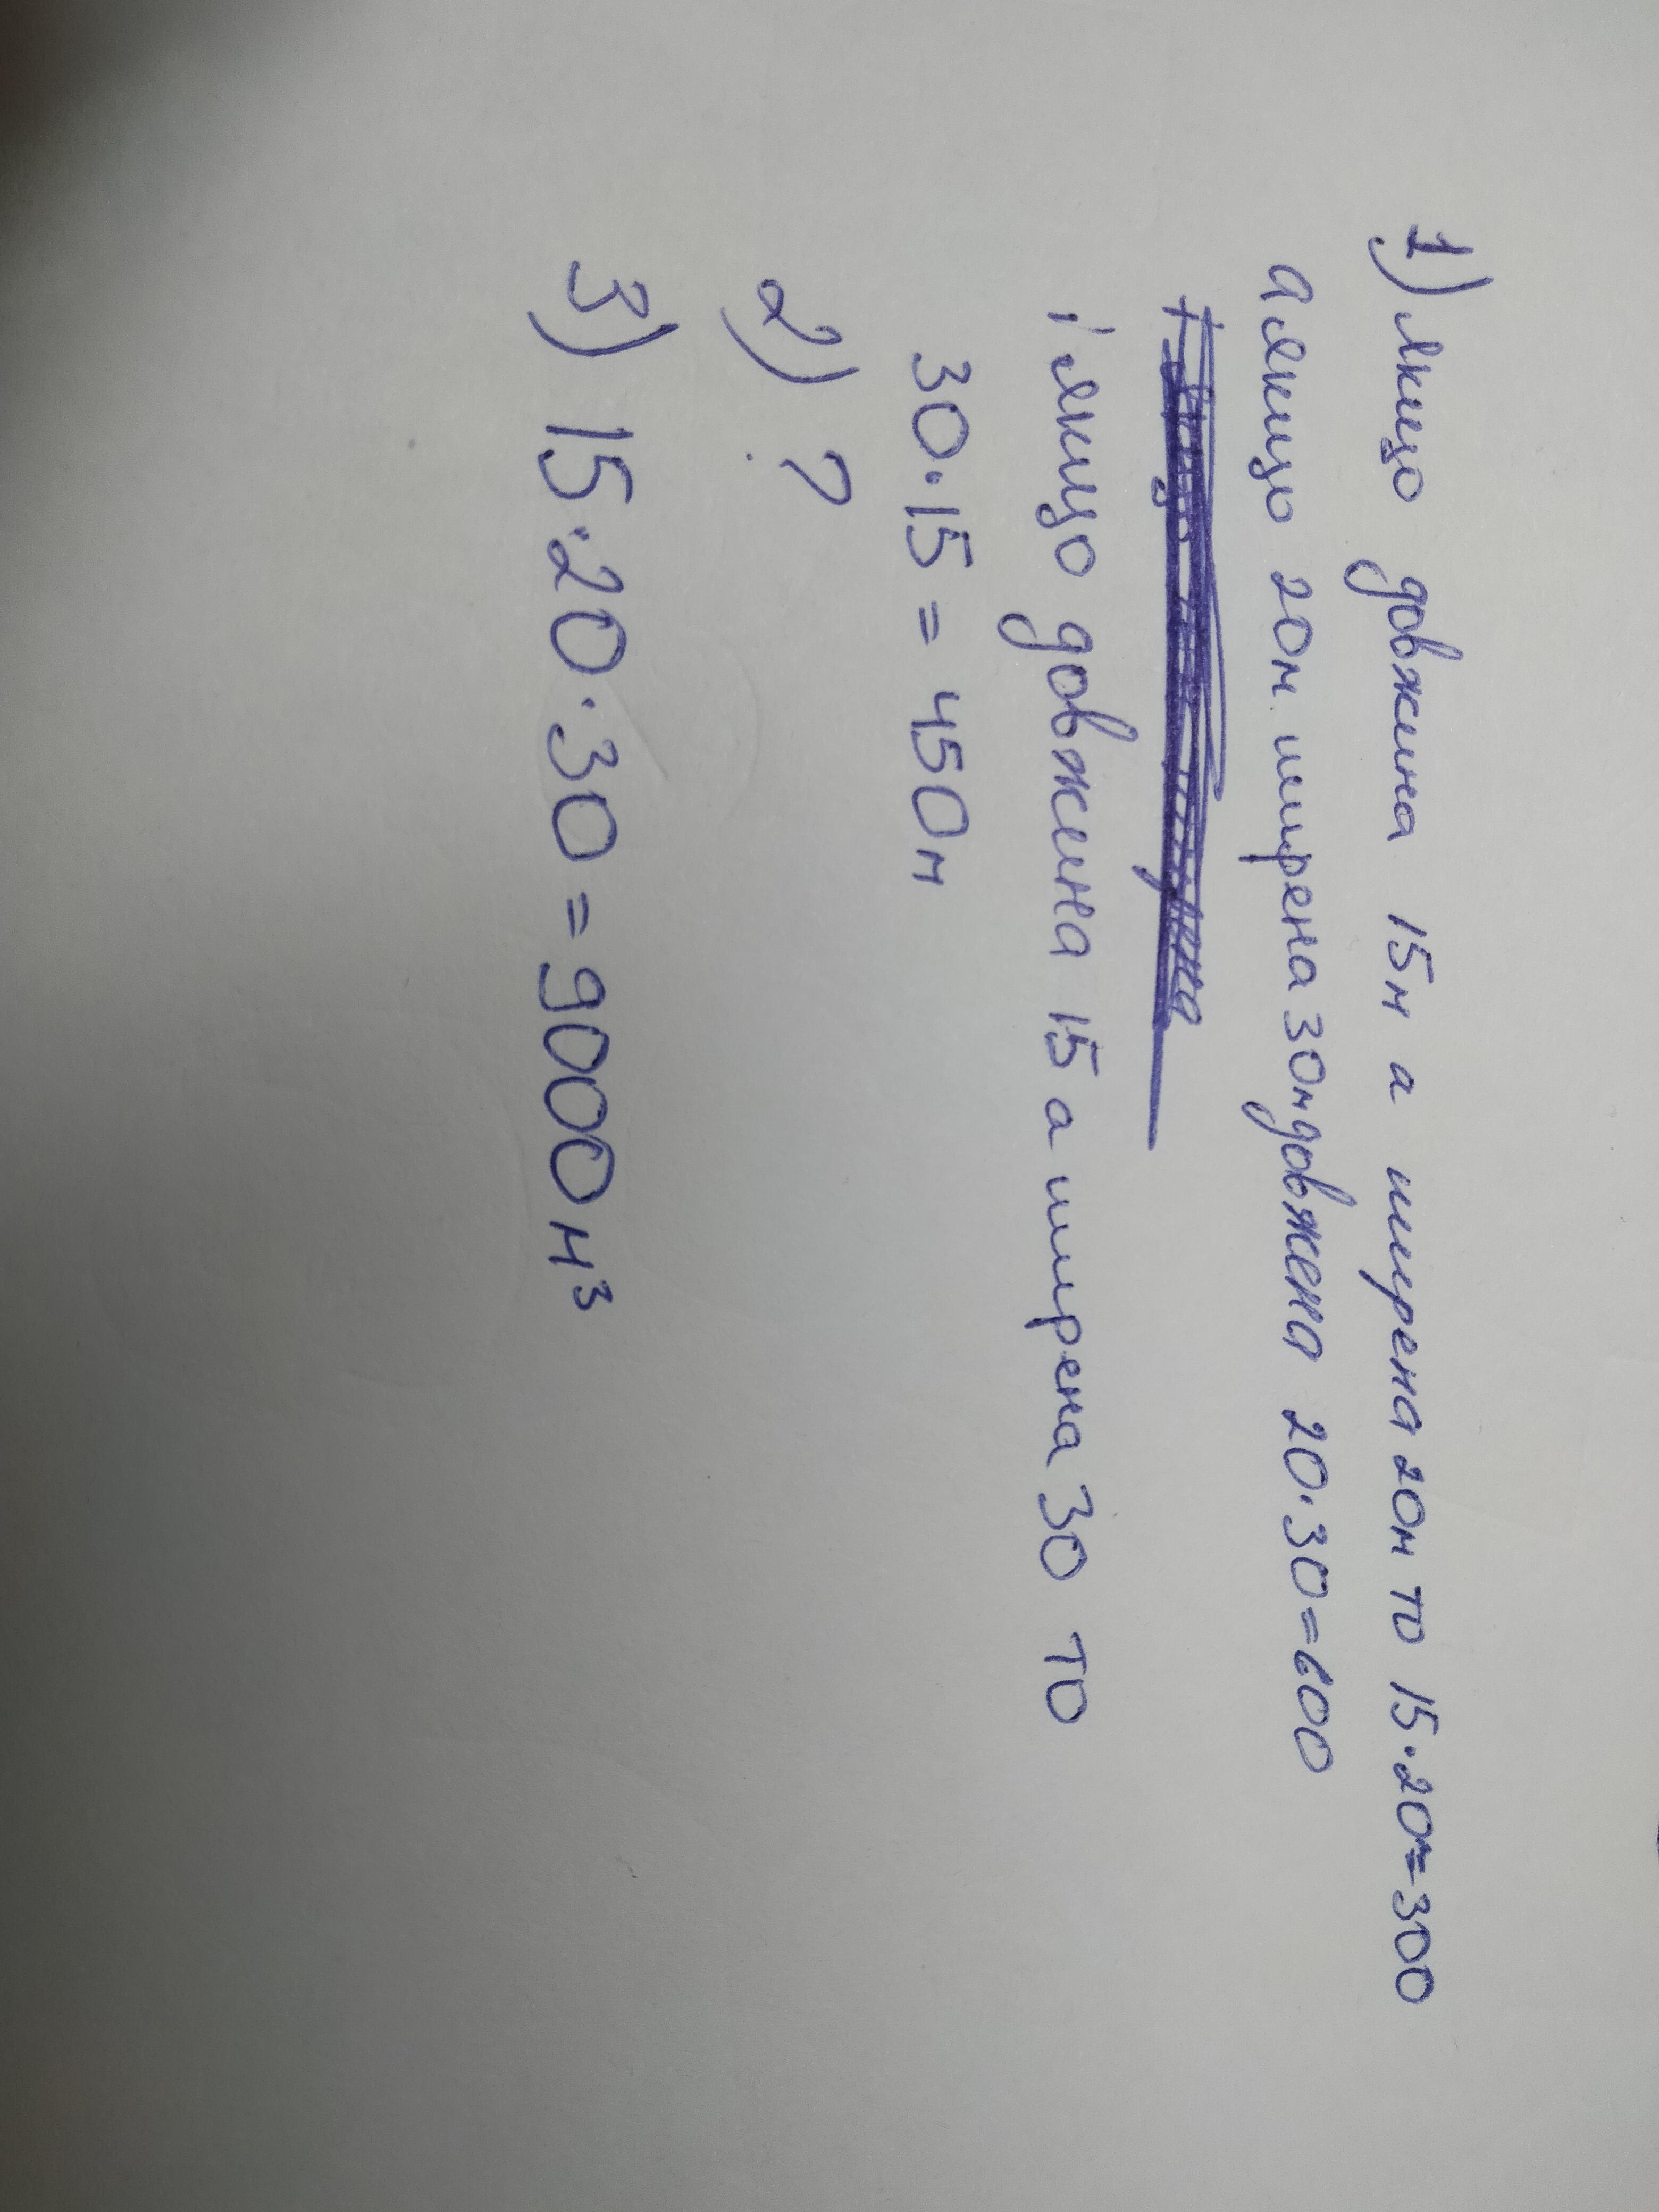 1) якщо довжина 15м а ширена 20м то 15·20м=300
а якщо 20м ширена 30м довжена 20·30=600
і якщо довжина 15 а ширена 30 то
30·15=450м
2) ?
3) 15·20·30=9000м³